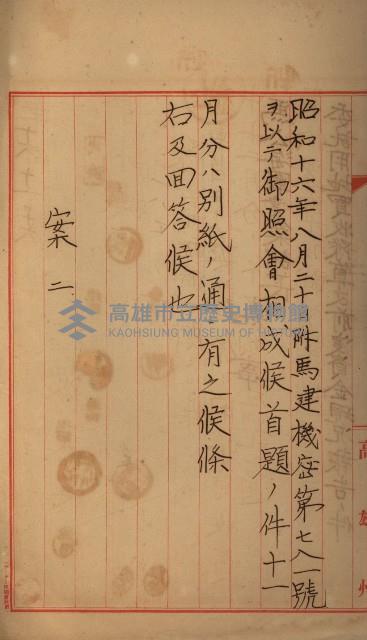 昭和十六年八月二十附馬建機密第七八一號
ヲ以テ御照會相成候首題ノ件十一
月分ハ別紙ノ通有之候條
右及回答候也
案二、
高雄州
高雄市立歷史博物館
KAOHSIUNG MUSEUM OF HISTORY